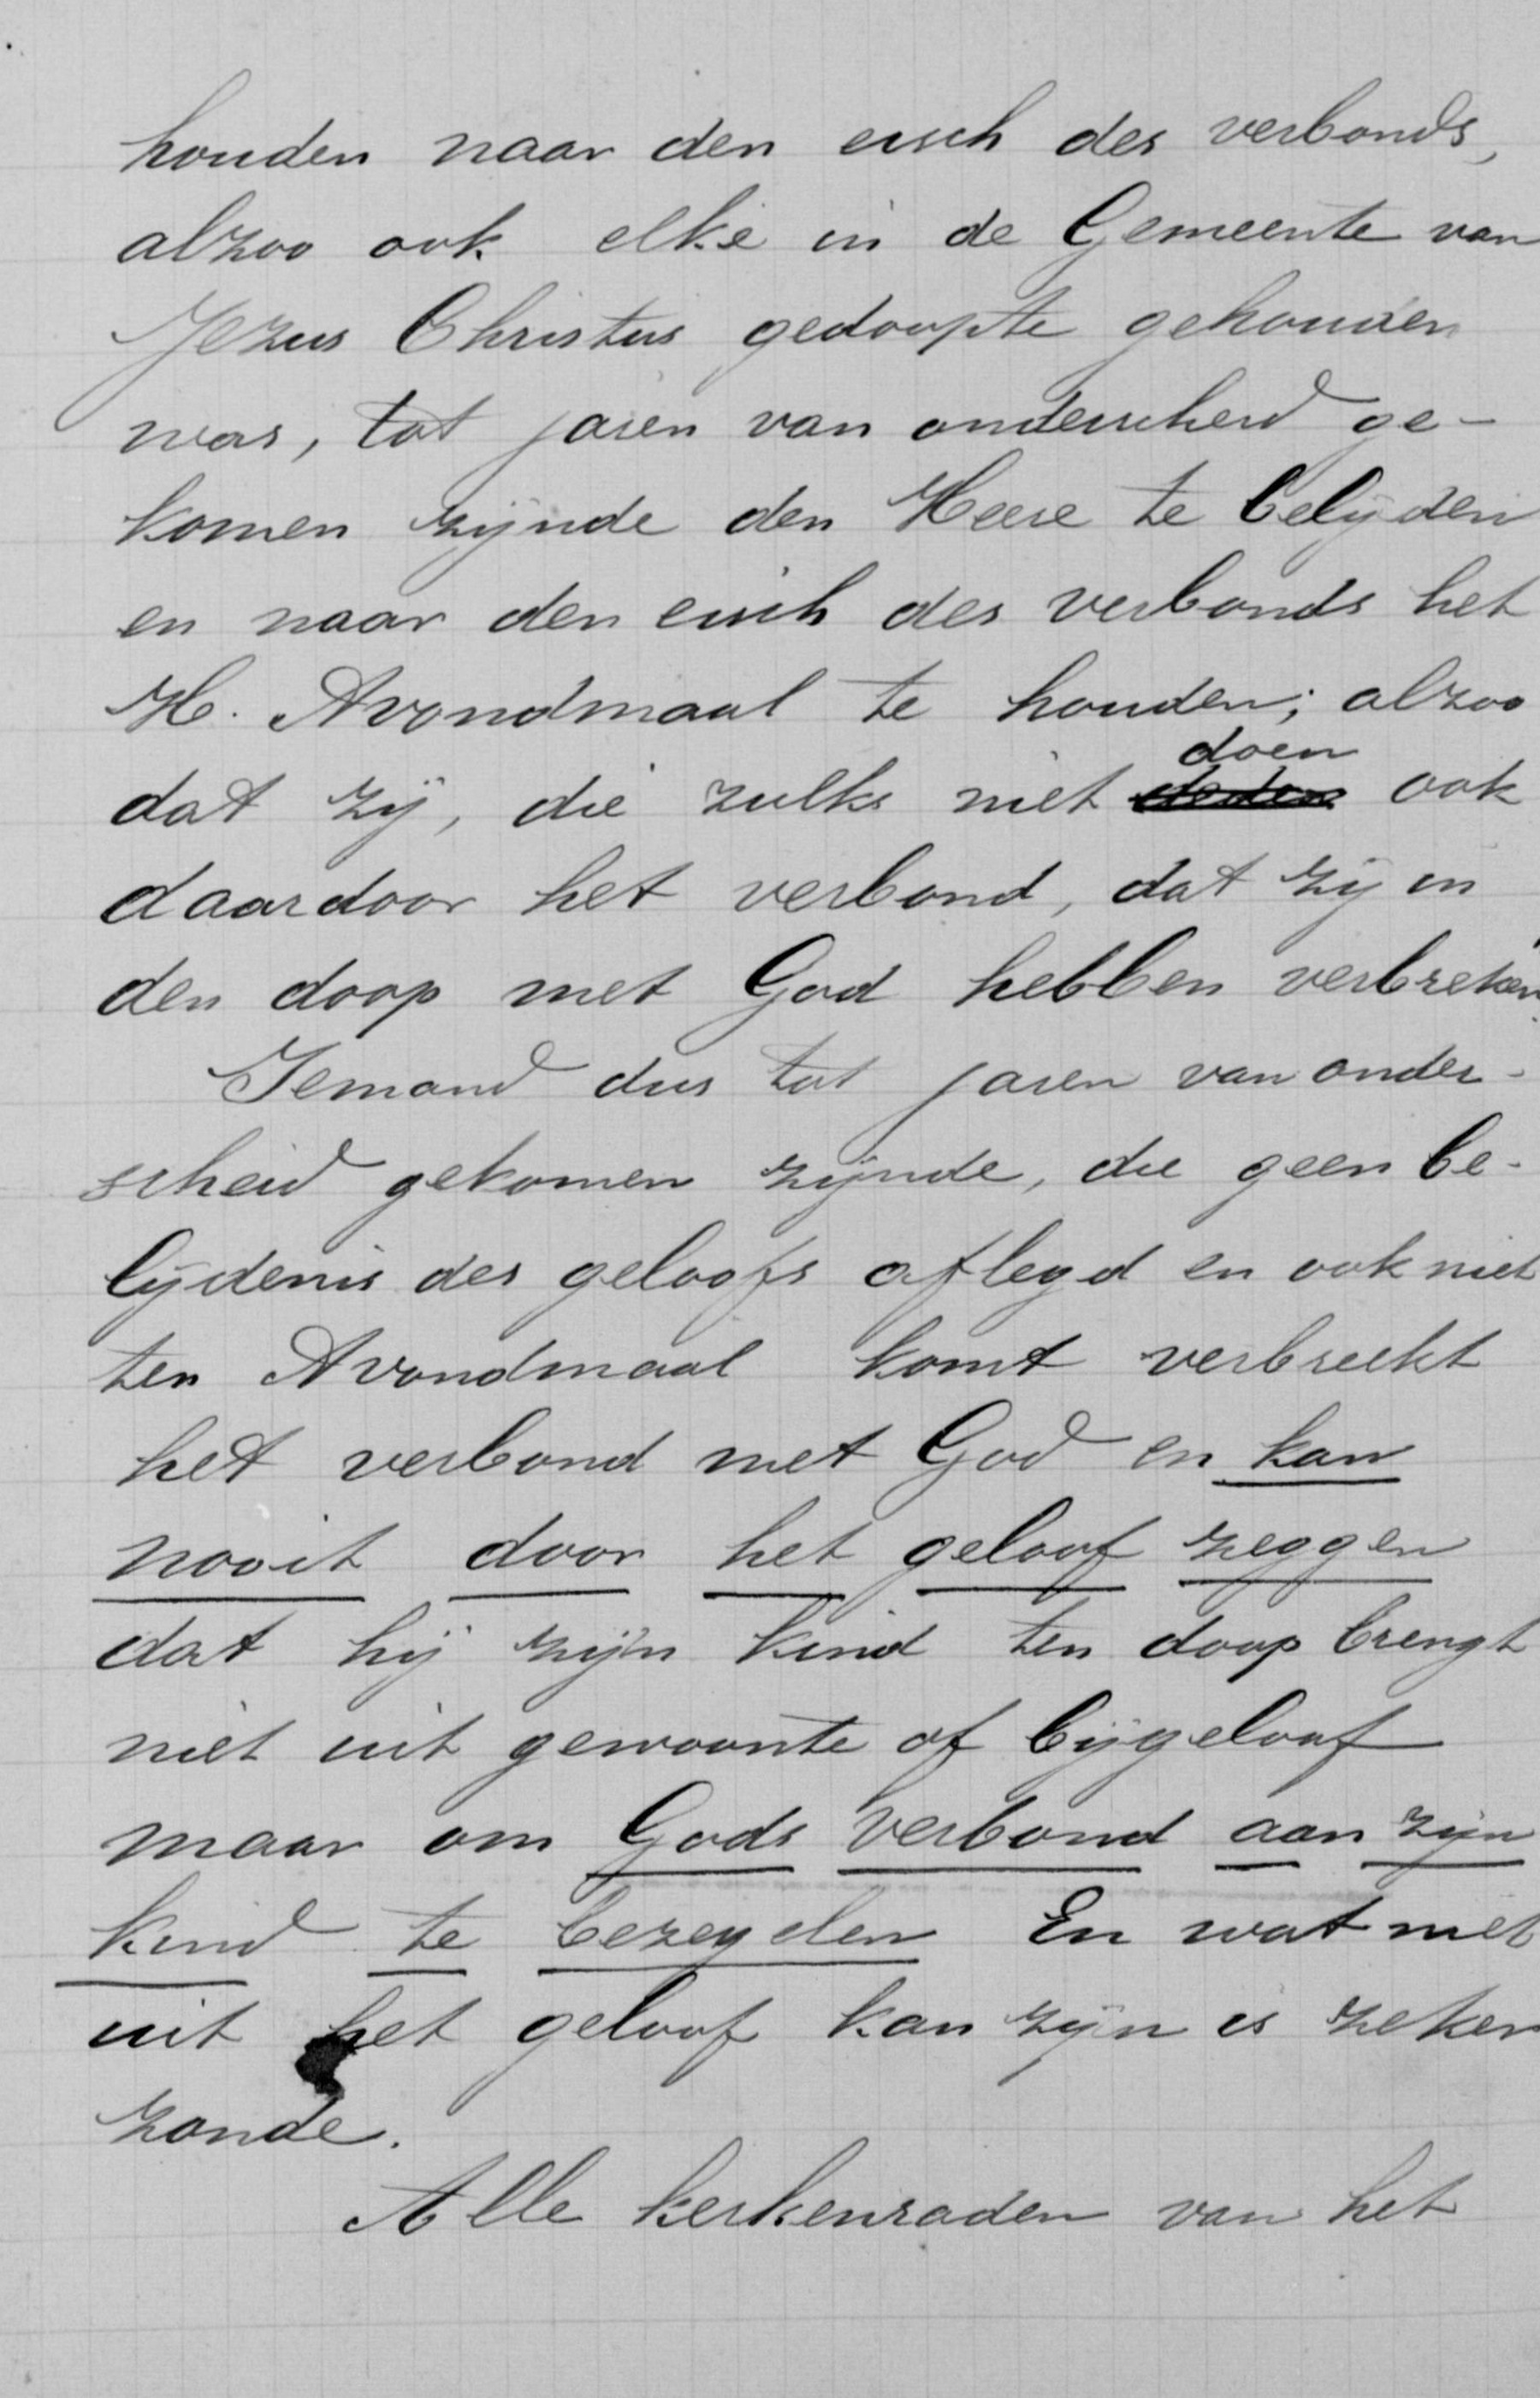 houden naar den eisch des verbonds,
alzoo ook elke in de Gemeente van
Jezus Christus gedoopte gehouden
was, tot jaren van onderscheid ge-
komen zijnde den Heere te belijden
en naar den eisch des verbonds het
H. Avondmaal te houden; alzoo
doen
dat zij, die zulks niet deden ook
daardoor het verbond, dat zij in
den doop met God hebben verbreken
Iemand dus tot jaren van onder-
scheid gekomen zijnde, die geen be-
lijdenis des geloofs aflegd en ook niet
ten Avondmaal komt verbreekt
het verbond met God en kan
nooit door het geloof zeggen
dat hij zijn kind ten doop brengt
niet uit gewoonte of bijgeloof
maar om Gods verbond aan zijn
kind te bezegelen En wat niet
uit het geloof kan zijn is zeker
zonde.
Alle kerkenraden van het